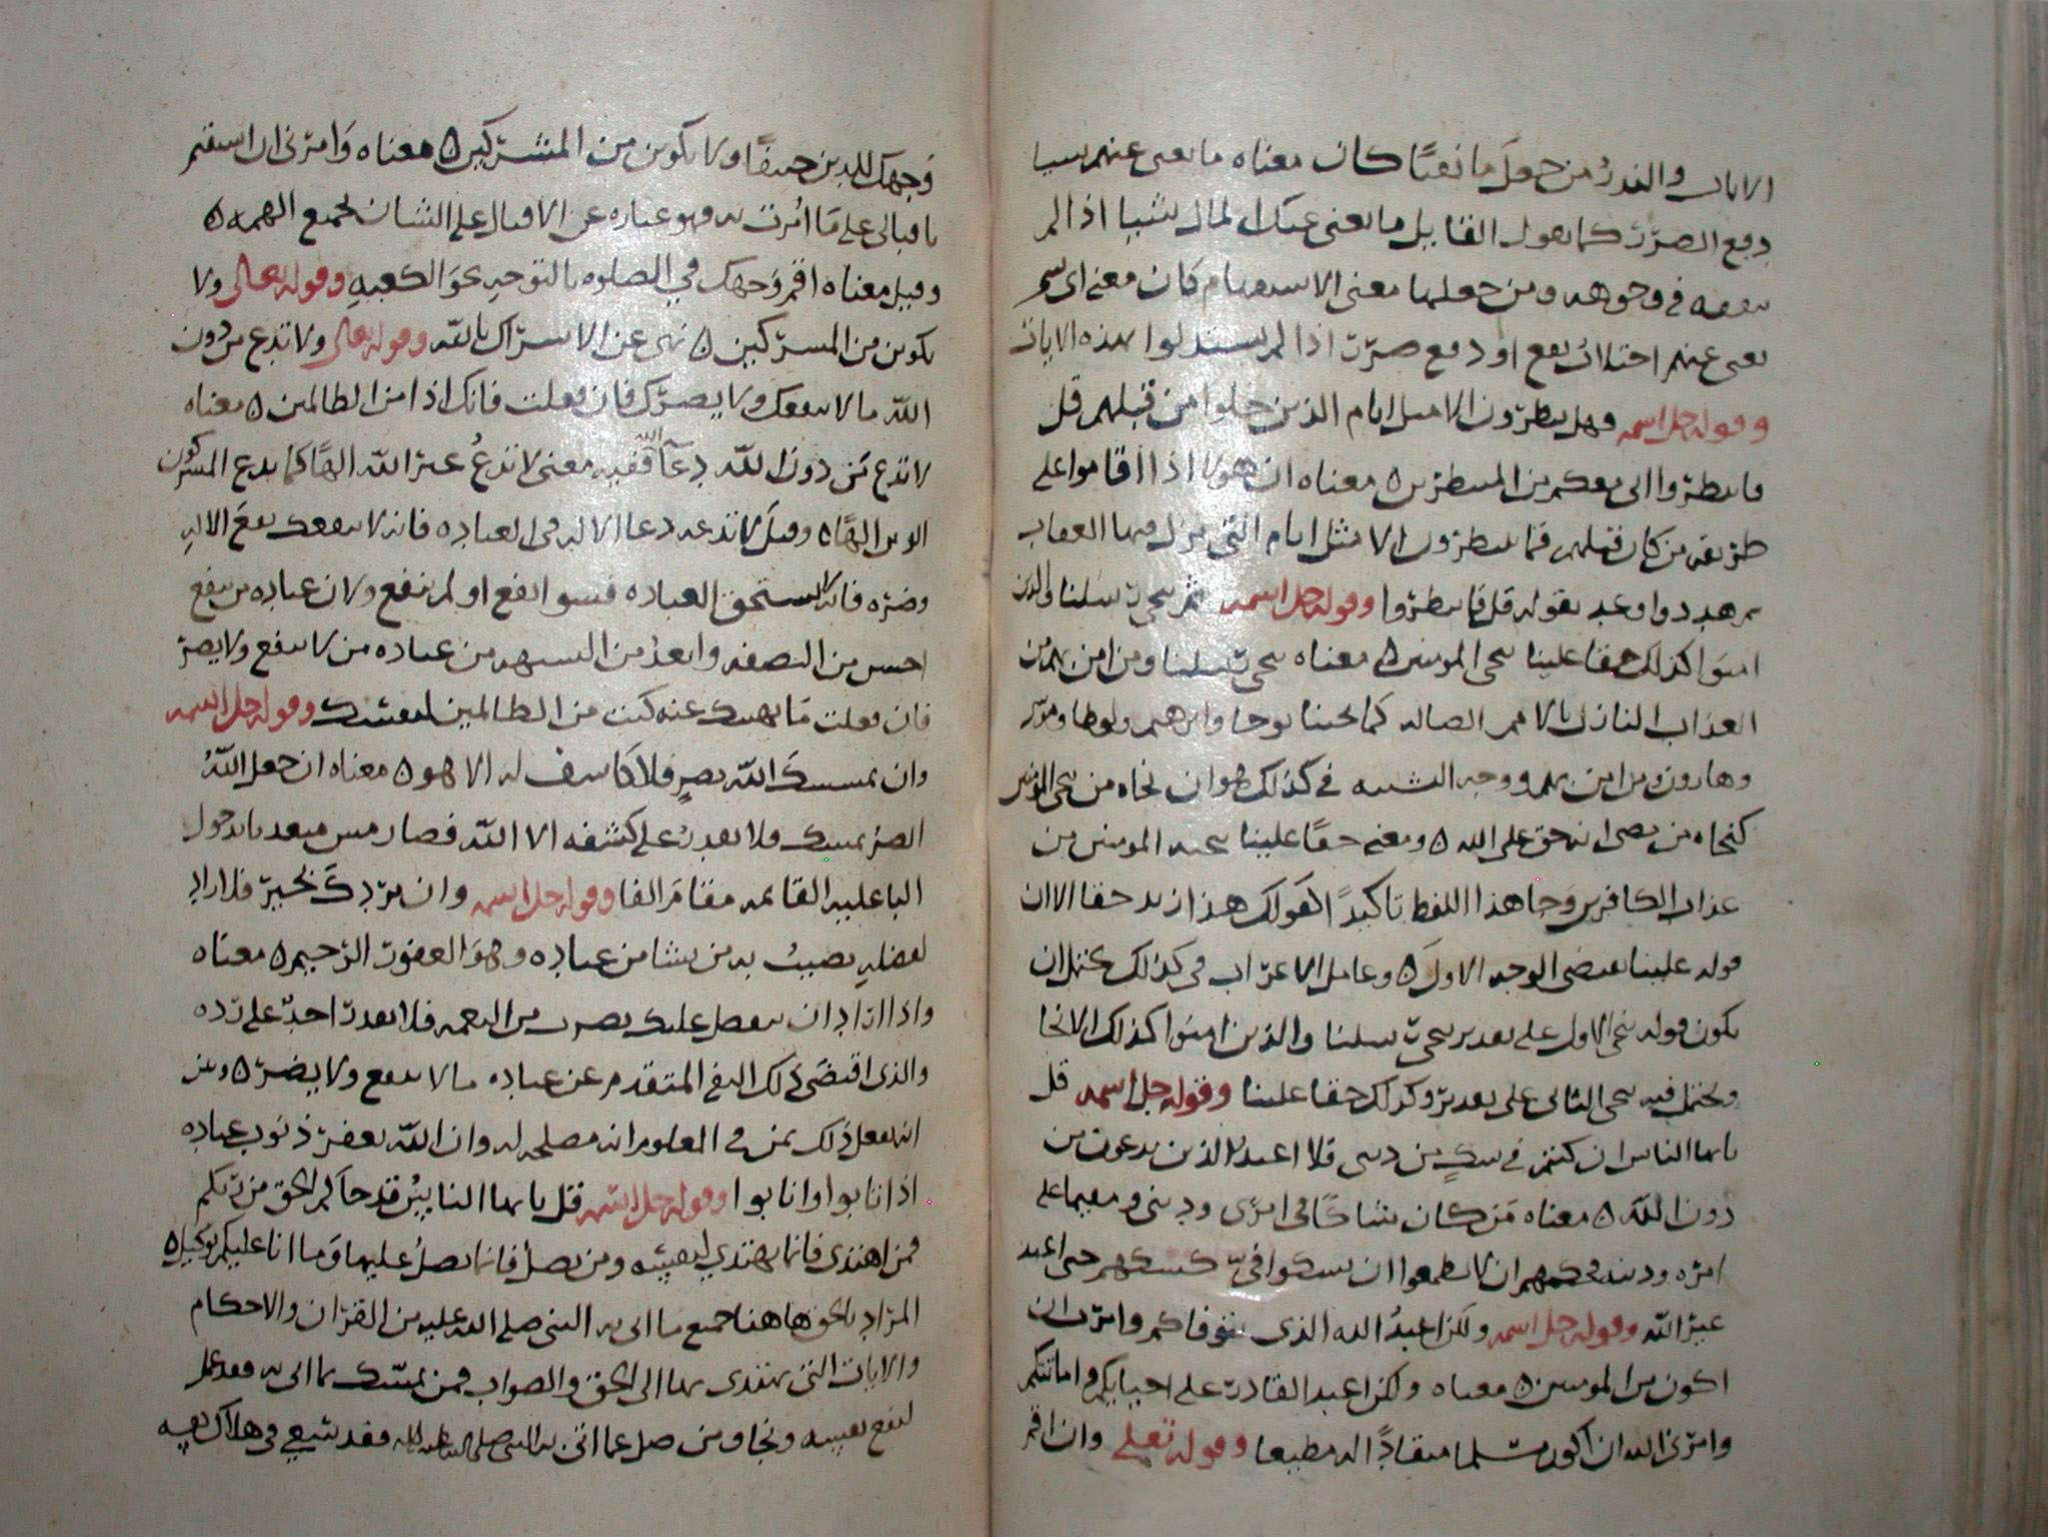 الايات والنذر من جعل ما نفيا كان معناه ما يغني عنهم شيا
دفع الضرر كما يقول القايل ما يغني عنك المال شيا اذا لم
ينفقه في وجوهه ومن جعلها معنى الاستفهام كان معنى اي شي
يغني عنهم اجتلاب نفع او دفع ضرر اذا لم يستدلوا بهذه الايات
وقوله جل اسمه فهل ينظرون الا مثل ايام الذين خلوا من قبلهم قل
فانتظروا اني معكم من المنتظرين ه معناه ان هولا اذا اقاموا على
طريقه من كان قبلهم فما ينتظرون الا مثل ايام التي ينزل فيها العقاب
ثم هددوا وعيد بقوله قل فانتظروا وقوله جل اسمه ثم ننجي رسلنا والذين
امنوا كذلك حقا علينا ننجي المومنين ه معناه ننجي رسلنا ومن امن بهم من
العذاب النازل بالامم الضاله كما نجينا نوحا وابرهيم ولوطا وموسى
وهارون ومن امن بهم ووجه الشبه في كذلك هو ان نجاه من ننجي المومنين
كنجاه من مضى انه حق على الله ه ومعنى حقا علينا ننجي المومنين من
عذاب الكافرين وجا هذا اللفظ تاكيدا كقولك هذا زيد حقا الا ان
قوله علينا يقتضي الوجه الاول ه وعامل الاعراب في كذلك يحتمل ان
يكون قوله ننجي الاول على تقدير ننجي رسلنا والذين امنوا كذلك الانجا
ويحتمل فيه ننجي الثاني على تقدير وكذلك حقا علينا وقوله جل اسمه قل
يايها الناس ان كنتم في شك من ديني فلا اعبد الذين تدعون من
دون الله ه معناه من كان شاكا في امري وديني ومقيما على
امره ودينه فحكمهم ان لا يطمعوا ان يشكوا في كشكهم حتى اعبد
غير الله وقوله جل اسمه ولكن اعبد الله الذي يتوفاكم وامرت ان
اكون من المومنين ه معناه ولكن اعبد القادر على احيايكم واماتتكم
وامرني الله ان اكون مسلما منقادا له مطيعا وقوله تعالى وان اقم
وجهك للدين حنيفا ولا تكونن من المشركين ه معناه وامرني ان استقم
باقبالي على ما امرت به وهو عباره عن الاقبال على الشان بجميع الهمه ه
وقيل معناه اقم وجهك في الصلوه بالتوجه نحو الكعبه وقوله تعالى ولا
تكونن من المشركين ه نهي عن الاشراك بالله وقوله تعالى ولا تدع من دون
الله ما لا ينفعك ولا يضرك فان فعلت فانك اذا من الظالمين ه معناه
لا تدع من دون الله دعا الله ففيه معنى لا تدع غير الله الها كما يدع المشركون
الوثن الها ه وقيل لا تدعه دعا الاله في العباده فانه لا ينفعك نفع الاله
وضره فانه لا يستحق العباده فسوا نفع او لم ينفع ولان عباده من ينفع
احسن من النصفه وابعد من الشبهه من عباده من لا ينفع ولا يضر
فان فعلت ما نهيتك عنه كنت من الظالمين لنفسك وقوله جل اسمه
وان يمسسك الله بضر فلا كاشف له الا هو ه معناه ان جعل الله
الضر يمسك فلا يقدر على كشفه الا الله فصار مس متعد بالدخول
البا عليه القايمه مقام الفا وقوله جل اسمه وان يردك بخير فلا راد
لفضله يصيب به من يشا من عباده وهو الغفور الرحيم ه معناه
واذا اراد ان يتفضل عليك بضرب من النعمه فلا يقدر احد على رده
والذي اقتضى ذلك النفي المتقدم عن عباده ما لا ينفع ولا يضر ه وبين
انه يفعل ذلك بمن في المعلوم انه مصلحه له وان الله يغفر ذنوب عباده
اذا تابوا وانابوا وقوله جل اسمه قل يايها الناس قد جاكم الحق من ربكم
فمن اهتدى فانما يهتدي لنفسه ومن يضل فانما يضل عليها وما انا عليكم بوكيل ه
المراد بالحق هاهنا جميع ما اتى به النبي صلى الله عليه من القران والاحكام
والايات التي يهتدى بها الى الحق والصواب فمن تمسك بما اتى به فقد عمل
لنفع نفسه ونجا ومن ضل عما اتى به النبي صلى الله عليه فقد سعى في هلاك نفسه